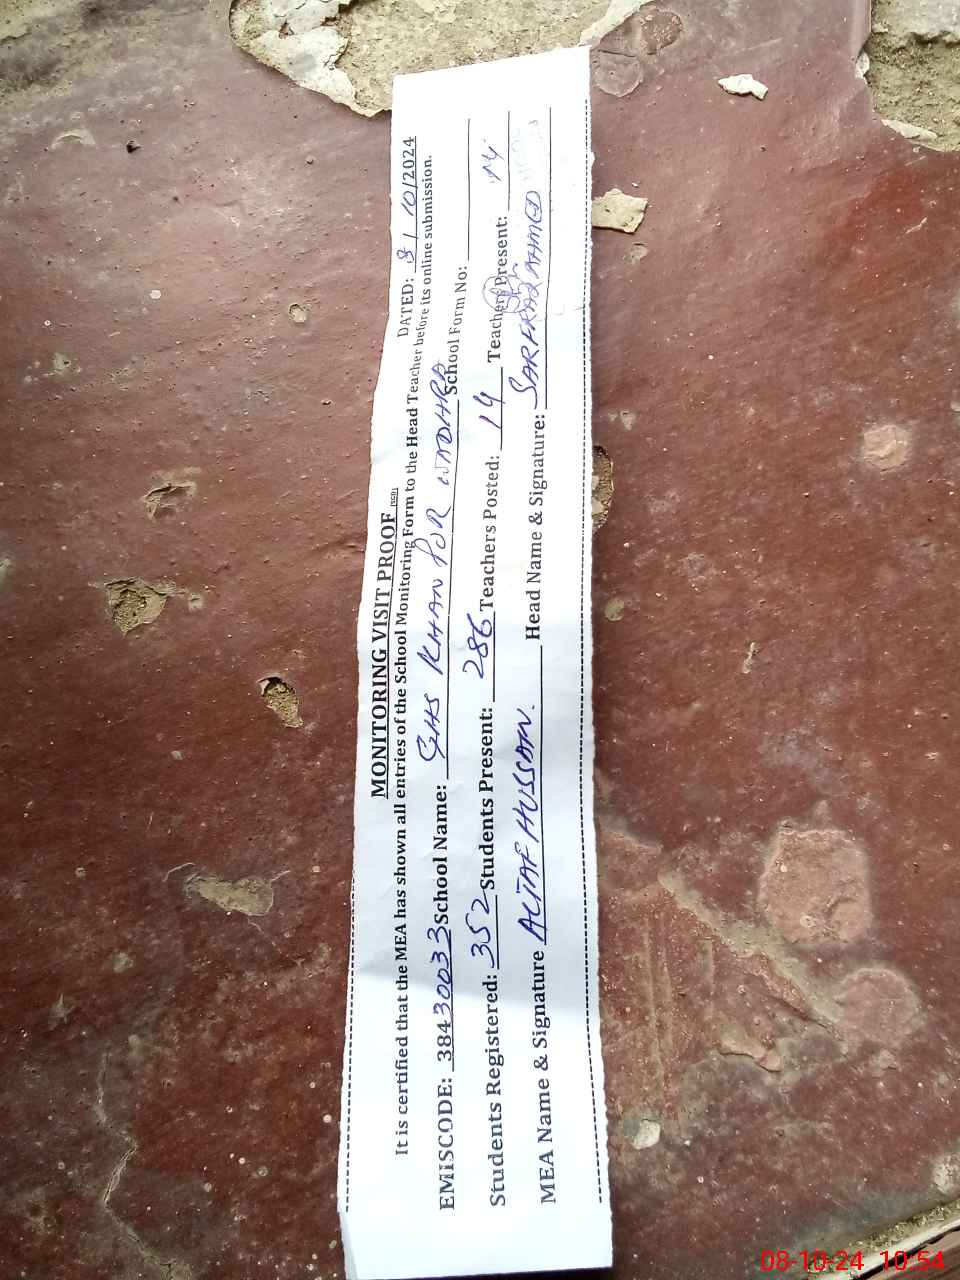 MONITORING VISIT PROOF
DATED: 8/10/2024
It is certified that the MEA has shown all entries of the School Monitoring Form to the Head Teacher before its online submission.
EMiSCODE: 38430033 School Name: GHS KHAN PUR WADHRA School Form No:
Students Registered: 352 Students Present: 286 Teachers Posted: 14 Teachers Present: 14
MEA Name & Signature ALTAF HUSSAIN. Head Name & Signature: SARFRAZ AHMED
08-10-24 10:54